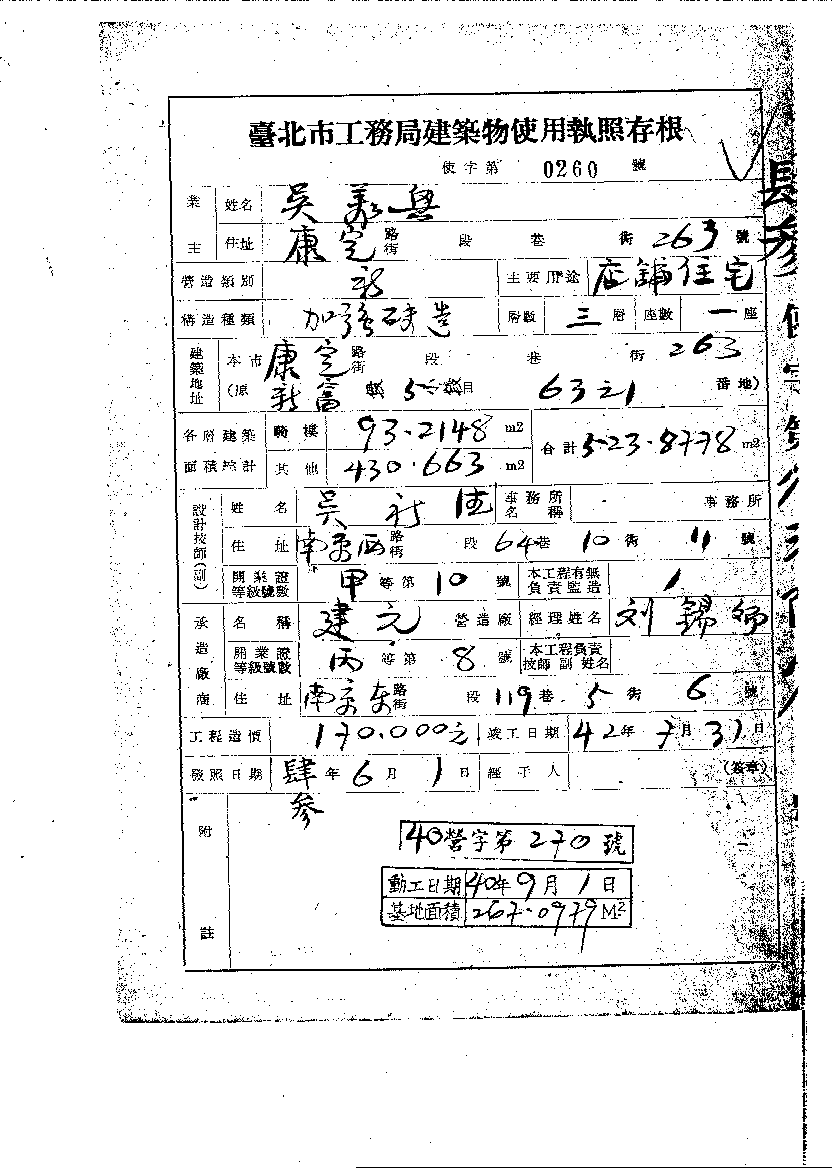 臺北市工務局建築物使用執照存根
使字第 0260 號
業主 姓名 吳 義 興
住址 康定 路街 段 巷 街 263 號
營造類別 新 主要用途 店鋪住宅
構造種類 加強磚造 層數 三 層 座數 一 座
建築地址 本市 康定 路街 段 巷 街 263
(原 新富 5 目 63之1 番地)
各層建築面積總計 騎樓 93.2148 m2 合計 523.8778 m2
其他 430.663 m2
設計技師(副) 姓名 吳 新 事務所名稱 事務所
住址 南京西 路街 段 64 巷 10 街 11 號
開業證等級號數 甲 等第 10 號 本工程有無負責監造
承造廠商 名稱 建元 營造廠 經理姓名 刘錫
開業證等級號數 丙 等第 8 號 本工程負責技師副姓名
住址 南京东 路街 段 119 巷 5 街 6 號
工程造價 170.000元 竣工日期 42年 7月 31日
發照日期 肆 年 6 月 1 日 經手人 (簽章)
參
附註
40營字第 270 號
動工日期 40年 9月 1日
基地面積 267.0979 M2